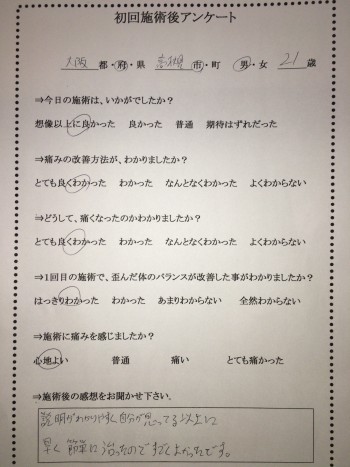 初回施術後アンケート
大阪 都・府・県 高槻 市・町 男・女 21 歳
⇒今日の施術は、いかがでしたか?
想像以上に良かった 良かった 普通 期待はずれだった
⇒痛みの改善方法が、わかりましたか?
とても良くわかった わかった なんとなくわかった よくわからない
⇒どうして、痛くなったのかわかりましたか?
とても良くわかった わかった なんとなくわかった よくわからない
⇒1回目の施術で、歪んだ体のバランスが改善した事がわかりましたか?
はっきりわかった わかった あまりわからない 全然わからない
⇒施術に痛みを感じましたか?
心地よい 普通 痛い とても痛かった
⇒施術後の感想をお聞かせ下さい。
説明がわかりやすく自分が思ってる以上に
早く 簡単に治ったのですごくよかったです。